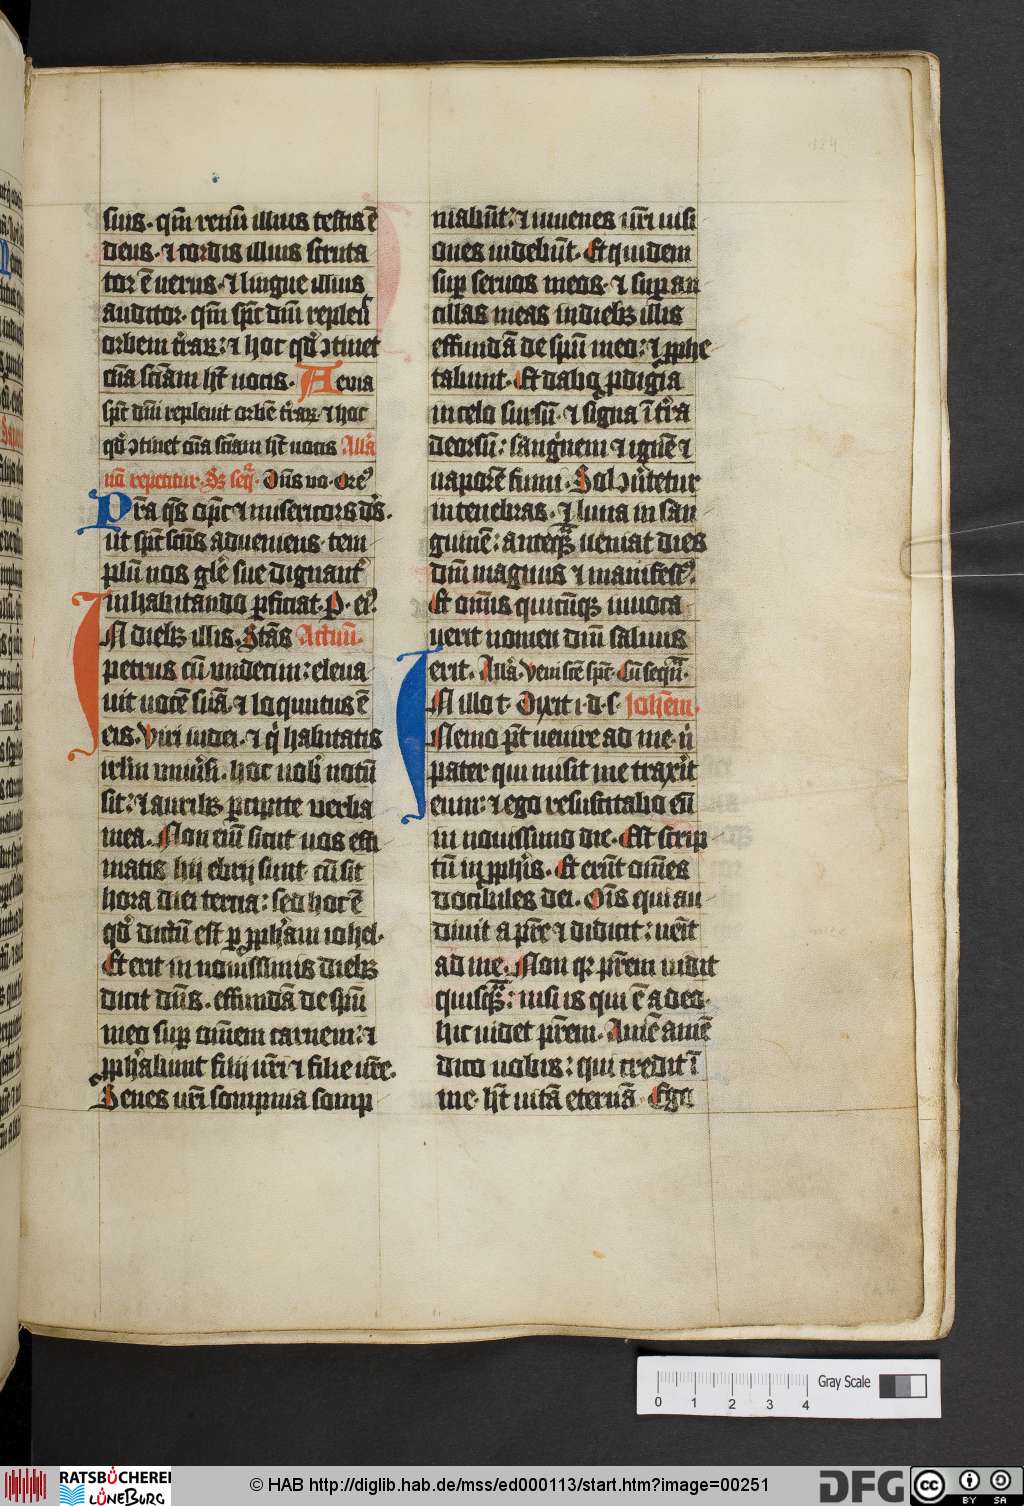 suis · qm̄ renū illius testis ē
deus · ⁊ cordis illius scruta
tor ē uerus · ⁊ lingue illius
auditor · qm̄ sp̄c dn̄i repleu͛
orbem t͛raꝝ : ⁊ hoc qd͛ ꝯtinet
oīa sciām h̄t uocis · Aeuia
sp̄c dn̄i repleuit orbē t͛raꝝ · ⁊ hoc
qd͛ ꝯtinet oīa sciām h̄t uocis All͛a
nō repetitur · Sȝ seq͛ · Dn̄s uo · Ore͛
Pr̄a qs̄ op̄c ⁊ misericors ds̄ ·
ut sp̄c scūs adueniens · tem
plū nos gl̄e sue dignant͛
inhabitando ꝑficiat · P · ei͛
IN dieb; illis · Stās Actuū ·
petrus cū undecim : eleua
uit uocē suā · ⁊ loquutus ē
eis · Viri iudei · ⁊ q͛ habitatis
irl̄m uniu͛si · hoc uob͛ notū
sit : ⁊ aurib; ꝑcipite uerba
mea · Non eni̅ sicut uos esti
matis hij ebrij sunt · cū sit
hora diei tertia : sed hoc ē
qd͛ dictū est ꝑ ꝓph͛am iohel ·
Et erit in nouissimis dieb;
dicit dn̄s · effundā de sp̄u
meo suꝑ omnem carnem : ⁊
ꝓph͛abunt filij ur̄i ⁊ filie ur̄e ·
Senes ur̄i sompnia somp
niabūt : ⁊ iuuenes ur̄i uisi
ones uidebūt · Et quidem
suꝑ seruos meos · ⁊ suꝑ an
cillas meas in dieb; illis
effundā de sp̄u meo : ⁊ ꝓphe
tabunt · Et dabo ꝓdigia
in celo sursū · ⁊ signa ī t͛ra
deorsū : sang͛nem ⁊ ignē ⁊
uaporē fumi · Sol ꝯu͛tetur
in tenebras · ⁊ luna in san
guinē : anteqͣ̄ ueniat dies
dn̄i magnus ⁊ manifest͛ ·
Et omīs quicūq; inuoca
uerit nomen dn̄i saluus
erit · All͛a · Veni scē sp̄c · Cū sequͣ ·
IN illo t · Dixit i · d · s · Ioh̄em ·
Nemo pt̄ uenire ad me · n͛
pater qui misit me trax͛it
eum : ⁊ ego resuscitabo eū
in nouissimo die · Est scrip
tū in ꝓph͛is · Et erūt omēs
docibiles dei · Oīs qui au
diuit a pr̄e ⁊ didicit : uēit
ad me · Non qꝛ pr̄em uidit
quisqͣ̄ : nisi is qui ē a deo ·
hic uidet pr̄em · Amē amē
dico uobis : qui credit ī
me · h̄t uitā eternā · Ego
Gray Scale
0 1 2 3 4
RATSBÜCHEREI
LÜNEBURG
© HAB http://diglib.hab.de/mss/ed000113/start.htm?image=00251
DFG
cc BY SA